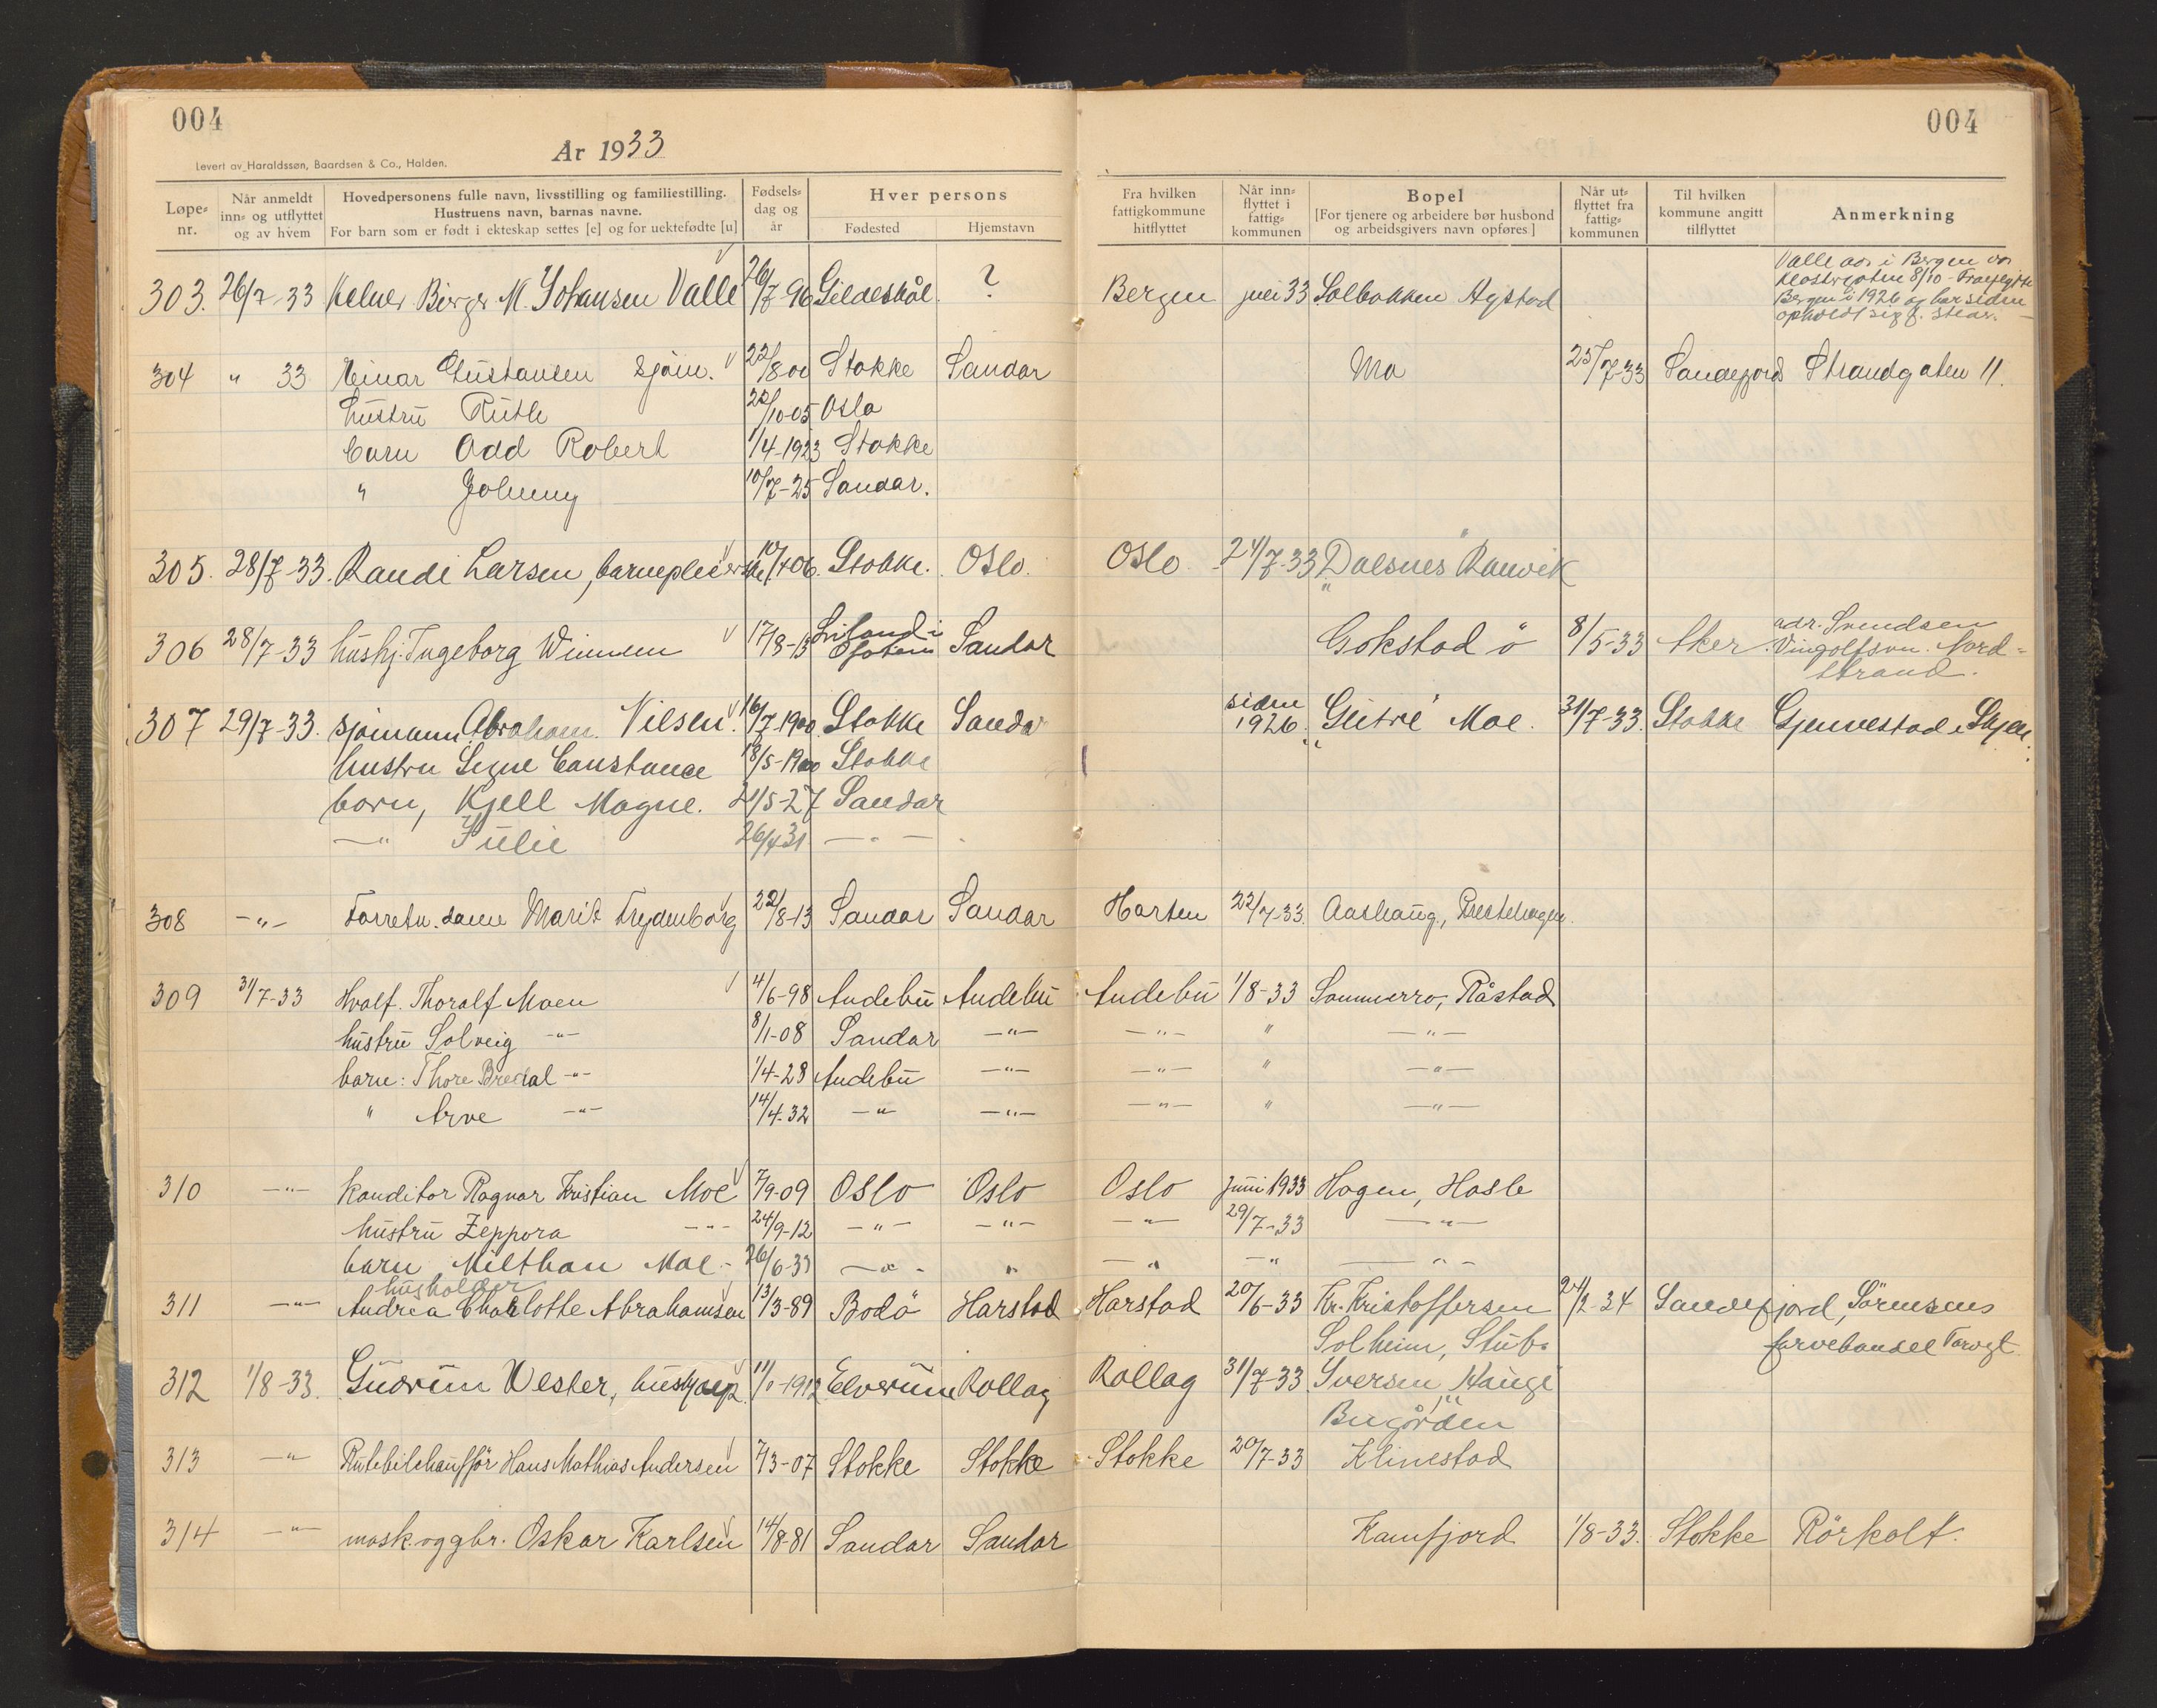 004
År 1933
Levert av Haraldssøn, Baardsen & Co., Halden.
Løpe-nr. Når anmeldt inn- og utflyttet og av hvem Hovedpersonens fulle navn, livsstilling og familiestilling. Hustruens navn, barnas navne. For barn som er født i ekteskap settes [e] og for uektefødte [u] Fødsels-dag og år Hver persons Fødested Hjemstavn
004
Fra hvilken fattigkommune hitflyttet Når inn-flyttet i fattig-kommunen Bopel [For tjenere og arbeidere bør husbond og arbeidsgivers navn opføres] Når ut-flyttet fra fattig-kommunen Til hvilken kommune angitt tilflyttet Anmerkning
303. 26/7-33 Kelner Birger M. Johansen Valle 26/7-96 Gildeskål. ? Bergen juli 33 Solbakken Nystad Valle adr. i Bergen var Klostergaten 8/10 - Fraflyttet Bergen i 1926 og har siden opholdt sig f. skar.
304 " 33 Einar Gustavsen sjøm. 22/8 00 Stokke Sandar Mo 25/7-33 Sandefjord Strandgaten 11.
hustru Ruth 22/10-05 Oslo
barn Odd Robert 1/4-1923 Stokke
" Johnny 10/7-25 Sandar.
305. 28/7-33. Randi Larsen, barnepleierske 10/4 06. Stokke. Oslo. Oslo 24/7-33 "Dalsnes" Ranvik
306 28/7-33 hushj. Ingeborg Winnem 17/8-13 Sandar Gokstad ö 8/5-33 Aker adr. Svendsen Vingolfsvn. Nord-strand.
307 29/7-33. sjømann Abraham Nilsen 16/7-1900 Stokke Sandar siden 1926. "Glitre" Moe. 31/7-33. Stokke Gjennestad i Skjee.
hustru Signe Constance 18/5-1900 Stokke
barn, Kjell Magne. 21/5-27 Sandar
—"— Julie 26/4 31 — " —
308 —"— Forretn. dame Marit Frydenborg 22/8-13 Sandar Sandar Horten 22/7-33. Aashaug, Prestehagen.
309 31/7-33 Hvalf. Thoralf Moen 4/6-98 Andebu Andebu Andebu 1/8-33 Sommerro, Råstad
hustru Solveig —"— 8/1-08 Sandar —"— —"— " —"—
barn: Thore Bredal —"— 1/4-28 Andebu —"— —"— " —"—
" Arve —"— 14/4-32 —"— —"— —"— " —"—
310 —"— Konditor Ragnar Kristian Moe 7/9-09 Oslo Oslo Oslo Juni 1933 Hagen, Hasle
hustru Zeppora —"— 24/9-12 —"— —"— —"— 29/7-33 —"—
barn Milthan Moe - 26/6-33 —"— " —"— —"— —"—
husholder
311 —"— Andrea Charlotte Abrahamsen 13/3-89 Bodö Harstad Harstad 20/6-33 Kr. Kristoffersen 24/2-34 Sandefjord, Sörensens
Solheim, Stub. farvehandel Torvgt.
312 1/8-33. Gudrun Vester, hushjelp 11/1-1912 Elverum Rollag Rollag 31/7-33 Iversen, "Haugen"
Bugården
313 —"— Rutebilchauffør Hans Mathias Andersen 7/3-07 Stokke Stokke Stokke 20/7-33 Klinestad
314 —"— mask. og gbr. Oskar Karlsen 14/8-81 Sandar Sandar Kamfjord 1/8-33. Stokke Rörkolt.